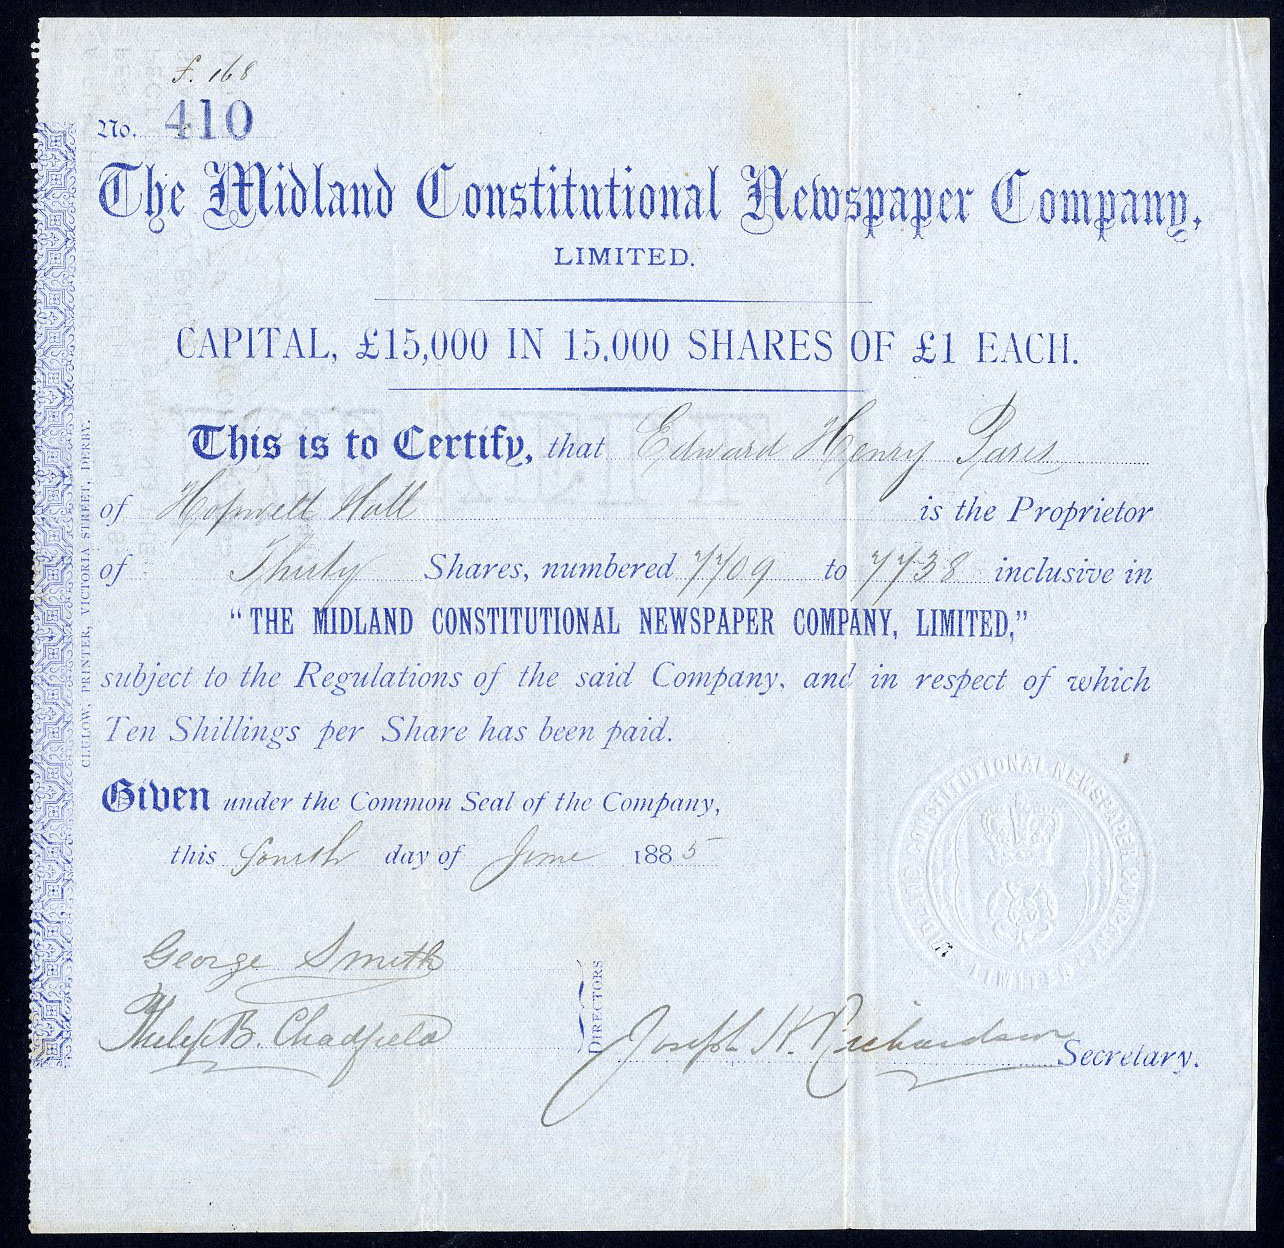 f. 168
No. 410
The Midland Constitutional Newspaper Company,
LIMITED.
CAPITAL, £15,000 IN 15,000 SHARES OF £1 EACH.
This is to Certify, that Edward Henry Pares
of Hopwell Hall is the Proprietor
of Thirty Shares, numbered 7709 to 7738 inclusive in
"THE MIDLAND CONSTITUTIONAL NEWSPAPER COMPANY, LIMITED,"
subject to the Regulations of the said Company, and in respect of which
Ten Shillings per Share has been paid.
Given under the Common Seal of the Company,
this fourth day of June 1885
George Smith
Philip B. Chadfield
DIRECTORS
Joseph H. Richardson Secretary.
CLULOW, PRINTER, VICTORIA STREET, DERBY.
CONSTITUTIONAL NEWSPAPER COMPANY
LIMITED